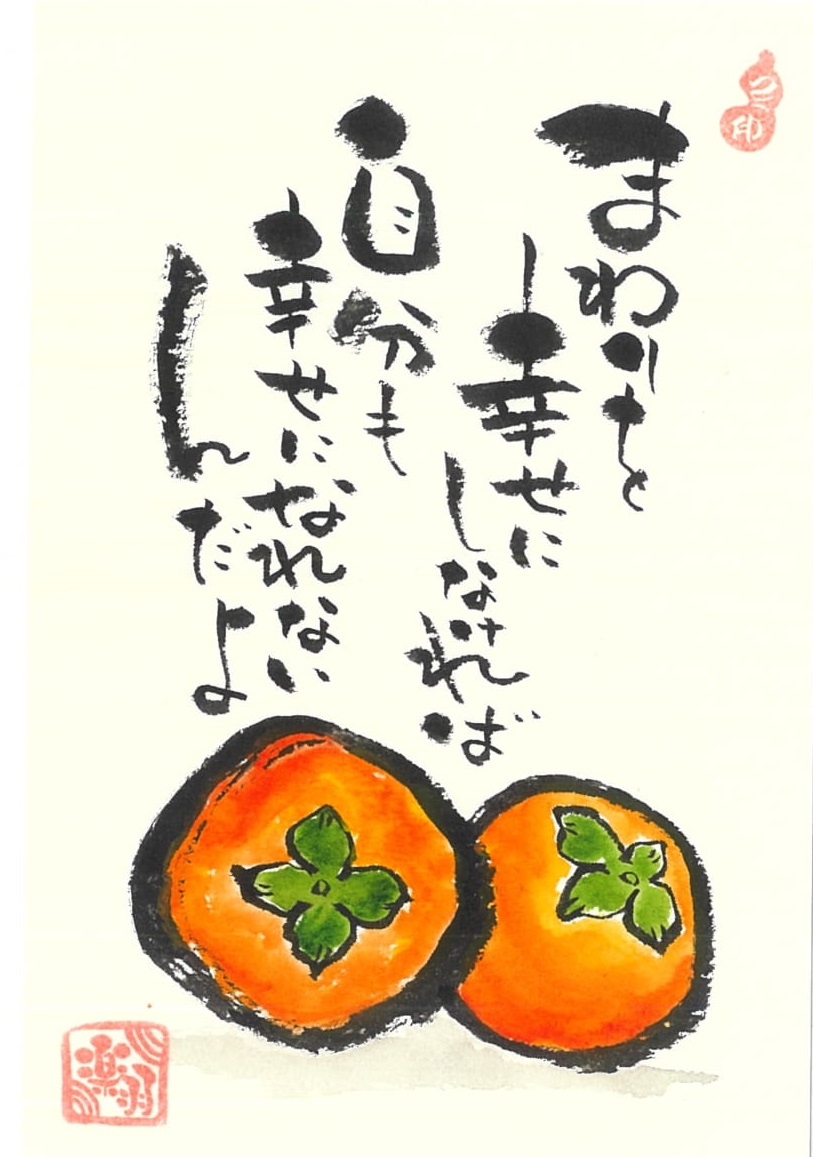 まわりを
幸せに
しなければ
自分も
幸せになれない
んだよ
楽羽